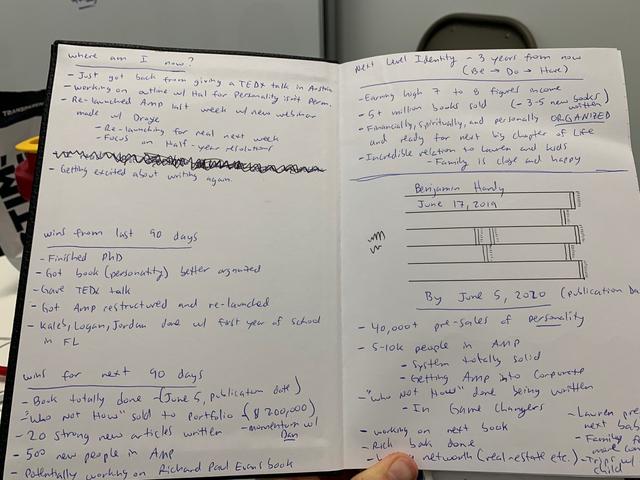 where am I now?
- Just got back from giving a TEDx talk in Austria
- working on outline w/ Hal for Personality isn't Perm.
- Re-launched Amp last week w/ new webinar
made w/ Draye
- Re-launching for real next week
- Focus on Half-year resolutions
- Getting excited about writing again
wins from last 90 days
- Finished PhD
- Got book (personality) better organized
- Gave TEDx talk
- Got Amp restructured and re-launched
- Kaleb, Logan, Jordan done w/ first year of school
in FL
wins for next 90 days
- Book totally done - (June 5, publication date)
- "Who Not How" sold to Portfolio ($200,000)
- momentum w/
Dan
- 20 strong new articles written
- 500 new people in Amp
- Potentially working on Richard Paul Evans book
Next Level Identity - 3 years from now
(Be → Do → Have)
- Earning high 7 to 8 figures income
- 5+ million books sold (- 3-5 new books written)
- Financially, spiritually, and personally ORGANIZED
and ready for next big chapter of life
- Incredible relation to Lauren and kids
- Family is close and happy
Benjamin Hardy
June 17, 2019
By June 5, 2020 (publication Da
- 40,000+ pre-sales of personality
- 5-10k people in AMP
- System totally solid
- Getting Amp into corporate
- "Who Not How" done being written
- In Game Changers
- working on next book
- Rich book done
networth (real-estate etc.)
- Lauren pre
next bab
- Family f
more con
- Trips w/
child